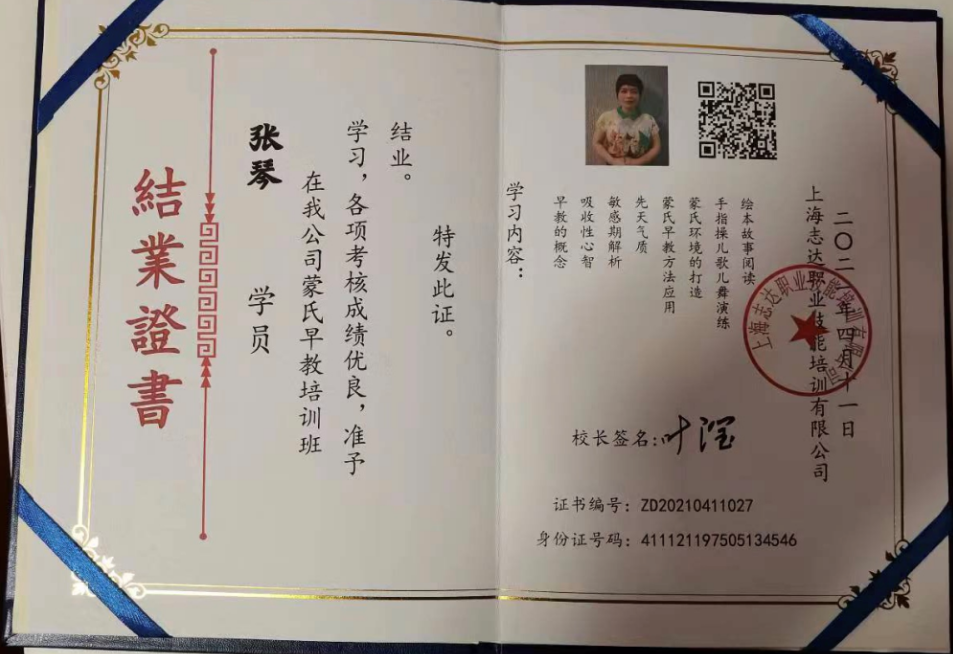 結業證書
张琴 学员
在我公司蒙氏早教培训班
学习，各项考核成绩优良，准予
结业。
特发此证。
学习内容：
早教的概念
吸收性心智
敏感期解析
先天气质
蒙氏早教方法应用
蒙氏环境的打造
手指操儿歌儿舞演练
绘本故事阅读
上海志达职业技能培训有限公司
二〇二一年四月十一日
上海志达职业技能培训有限公司
校长签名:叶
证书编号：ZD20210411027
身份证号码：411121197505134546